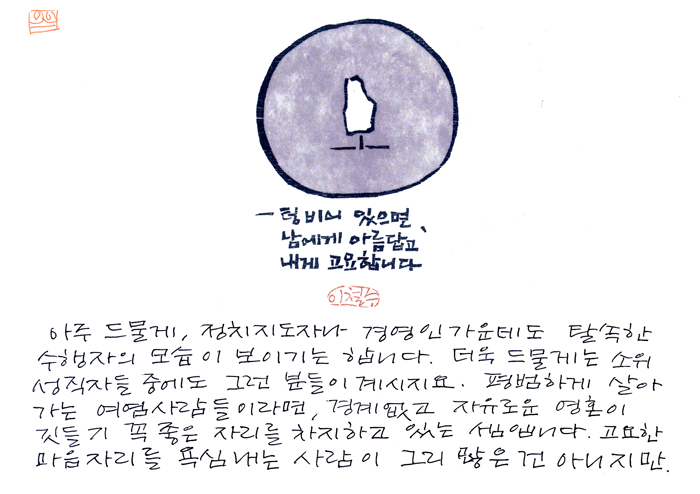 一 텅 비어 있으면
남에게 아름답고,
내게 고요합니다
이철수
아주 드물게, 정치지도자나 경영인 가운데도 탈속한
수행자의 모습이 보이기는 합니다. 더욱 드물게는 소위
성직자들 중에도 그런 분들이 계시지요. 평범하게 살아
가는 여염사람들이라면, 경계없고 자유로운 영혼이
깃들기 꼭 좋은 자리를 차지하고 있는 셈입니다. 고요한
마음자리를 욕심내는 사람이 그리 많은 건 아니지만.